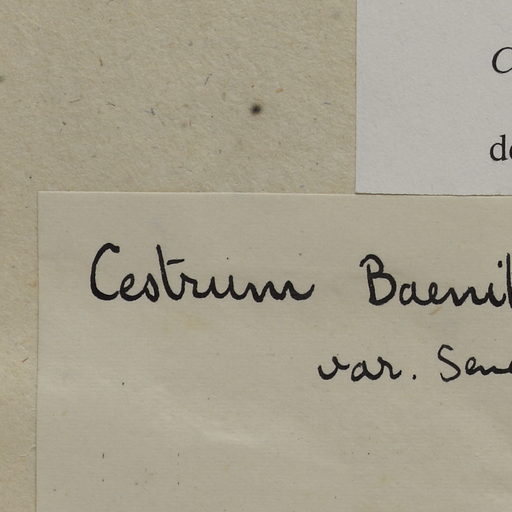 C
de
Cestrum Baenit
var. Sene